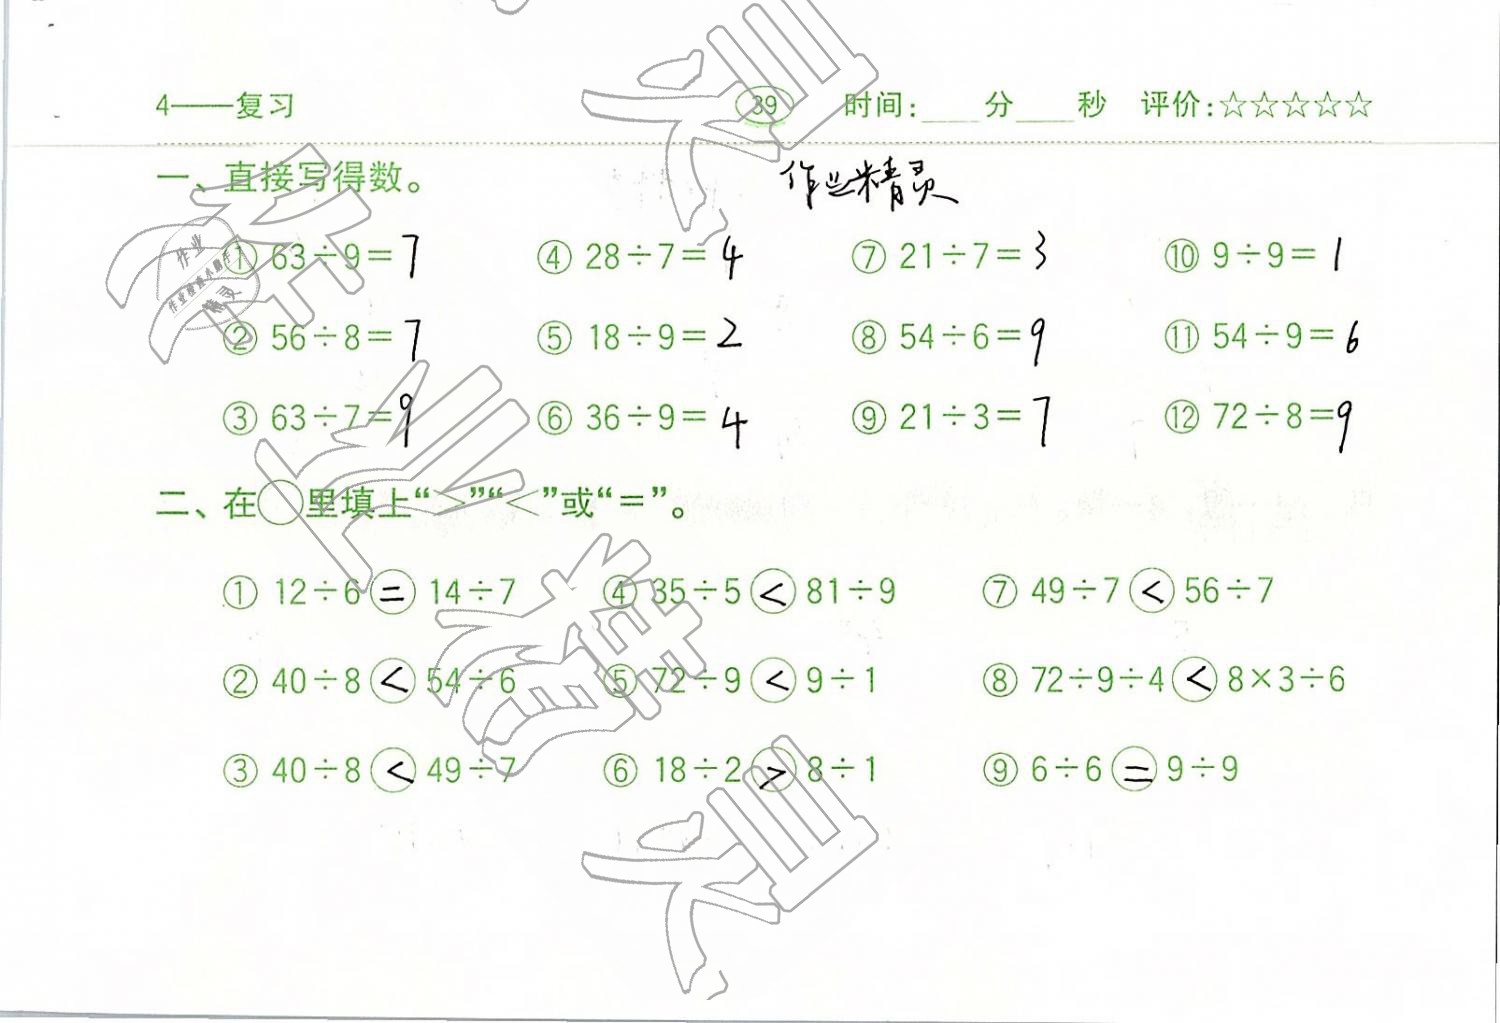 4——复习 39 时间:____分____秒 评价:☆☆☆☆☆
一、直接写得数。 作业精灵
① 63÷9=7 ④ 28÷7=4 ⑦ 21÷7=3 ⑩ 9÷9=1
② 56÷8=7 ⑤ 18÷9=2 ⑧ 54÷6=9 ⑪ 54÷9=6
③ 63÷7=9 ⑥ 36÷9=4 ⑨ 21÷3=7 ⑫ 72÷8=9
二、在○里填上“>”“<”或“=”。
① 12÷6=14÷7 ④ 35÷5<81÷9 ⑦ 49÷7<56÷7
② 40÷8<54÷6 ⑤ 72÷9<9÷1 ⑧ 72÷9÷4<8×3÷6
③ 40÷8<49÷7 ⑥ 18÷2>8÷1 ⑨ 6÷6=9÷9
作业
精灵